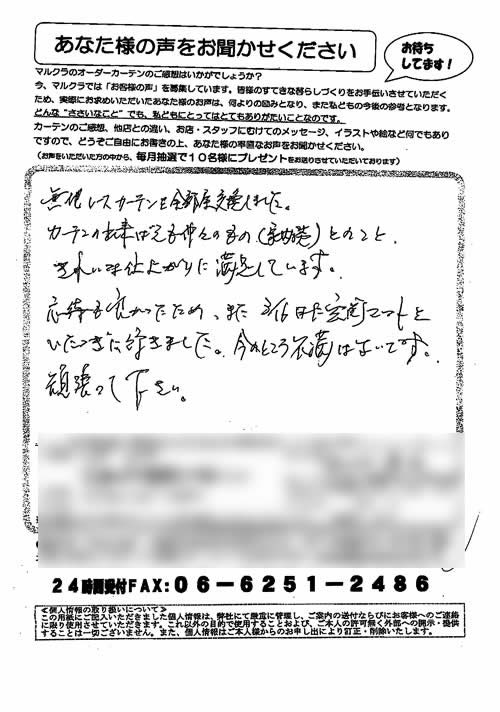 あなた様の声をお聞かせください
お待ち
してます!
マルクラのオーダーカーテンのご感想はいかがでしょうか?
今、マルクラでは「お客様の声」を募集しています。皆様のすてきな暮らしづくりをお手伝いさせていただく
ため、実際にお求めいただいたあなた様のお声は、何よりの励みとなり、また私どもの今後の参考となります。
どんな“ささいなこと”でも、私どもにとってはとてもありがたいことなのです。
カーテンのご感想、他店との違い、お店・スタッフにむけてのメッセージ、イラストや絵など何でもあり
ますので、どうぞご自由にお書きの上、あなた様の率直なお声をお聞かせください。
(お声をいただいた方の中から、毎月抽選で10名様にプレゼントをお送りさせていただいております)
レースカーテンを全部屋交換しました。
カーテンの出来ばえも
きれいな仕上がりに満足しています。
応待も良かったため、また
行きました。今のところ不満はないです。
頑張って下さい。
24時間受付FAX:06-6251-2486
≪個人情報の取り扱いについて≫
この用紙にご記入いただきました個人情報は、弊社にて厳重に管理し、ご案内の送付ならびにお客様へのご連絡
に限り使用させていただきます。これ以外の目的で使用すること、および、ご本人の許可無く外部への開示・提供
することは一切ございません。また、個人情報はご本人様からのお申し出により訂正・削除いたします。